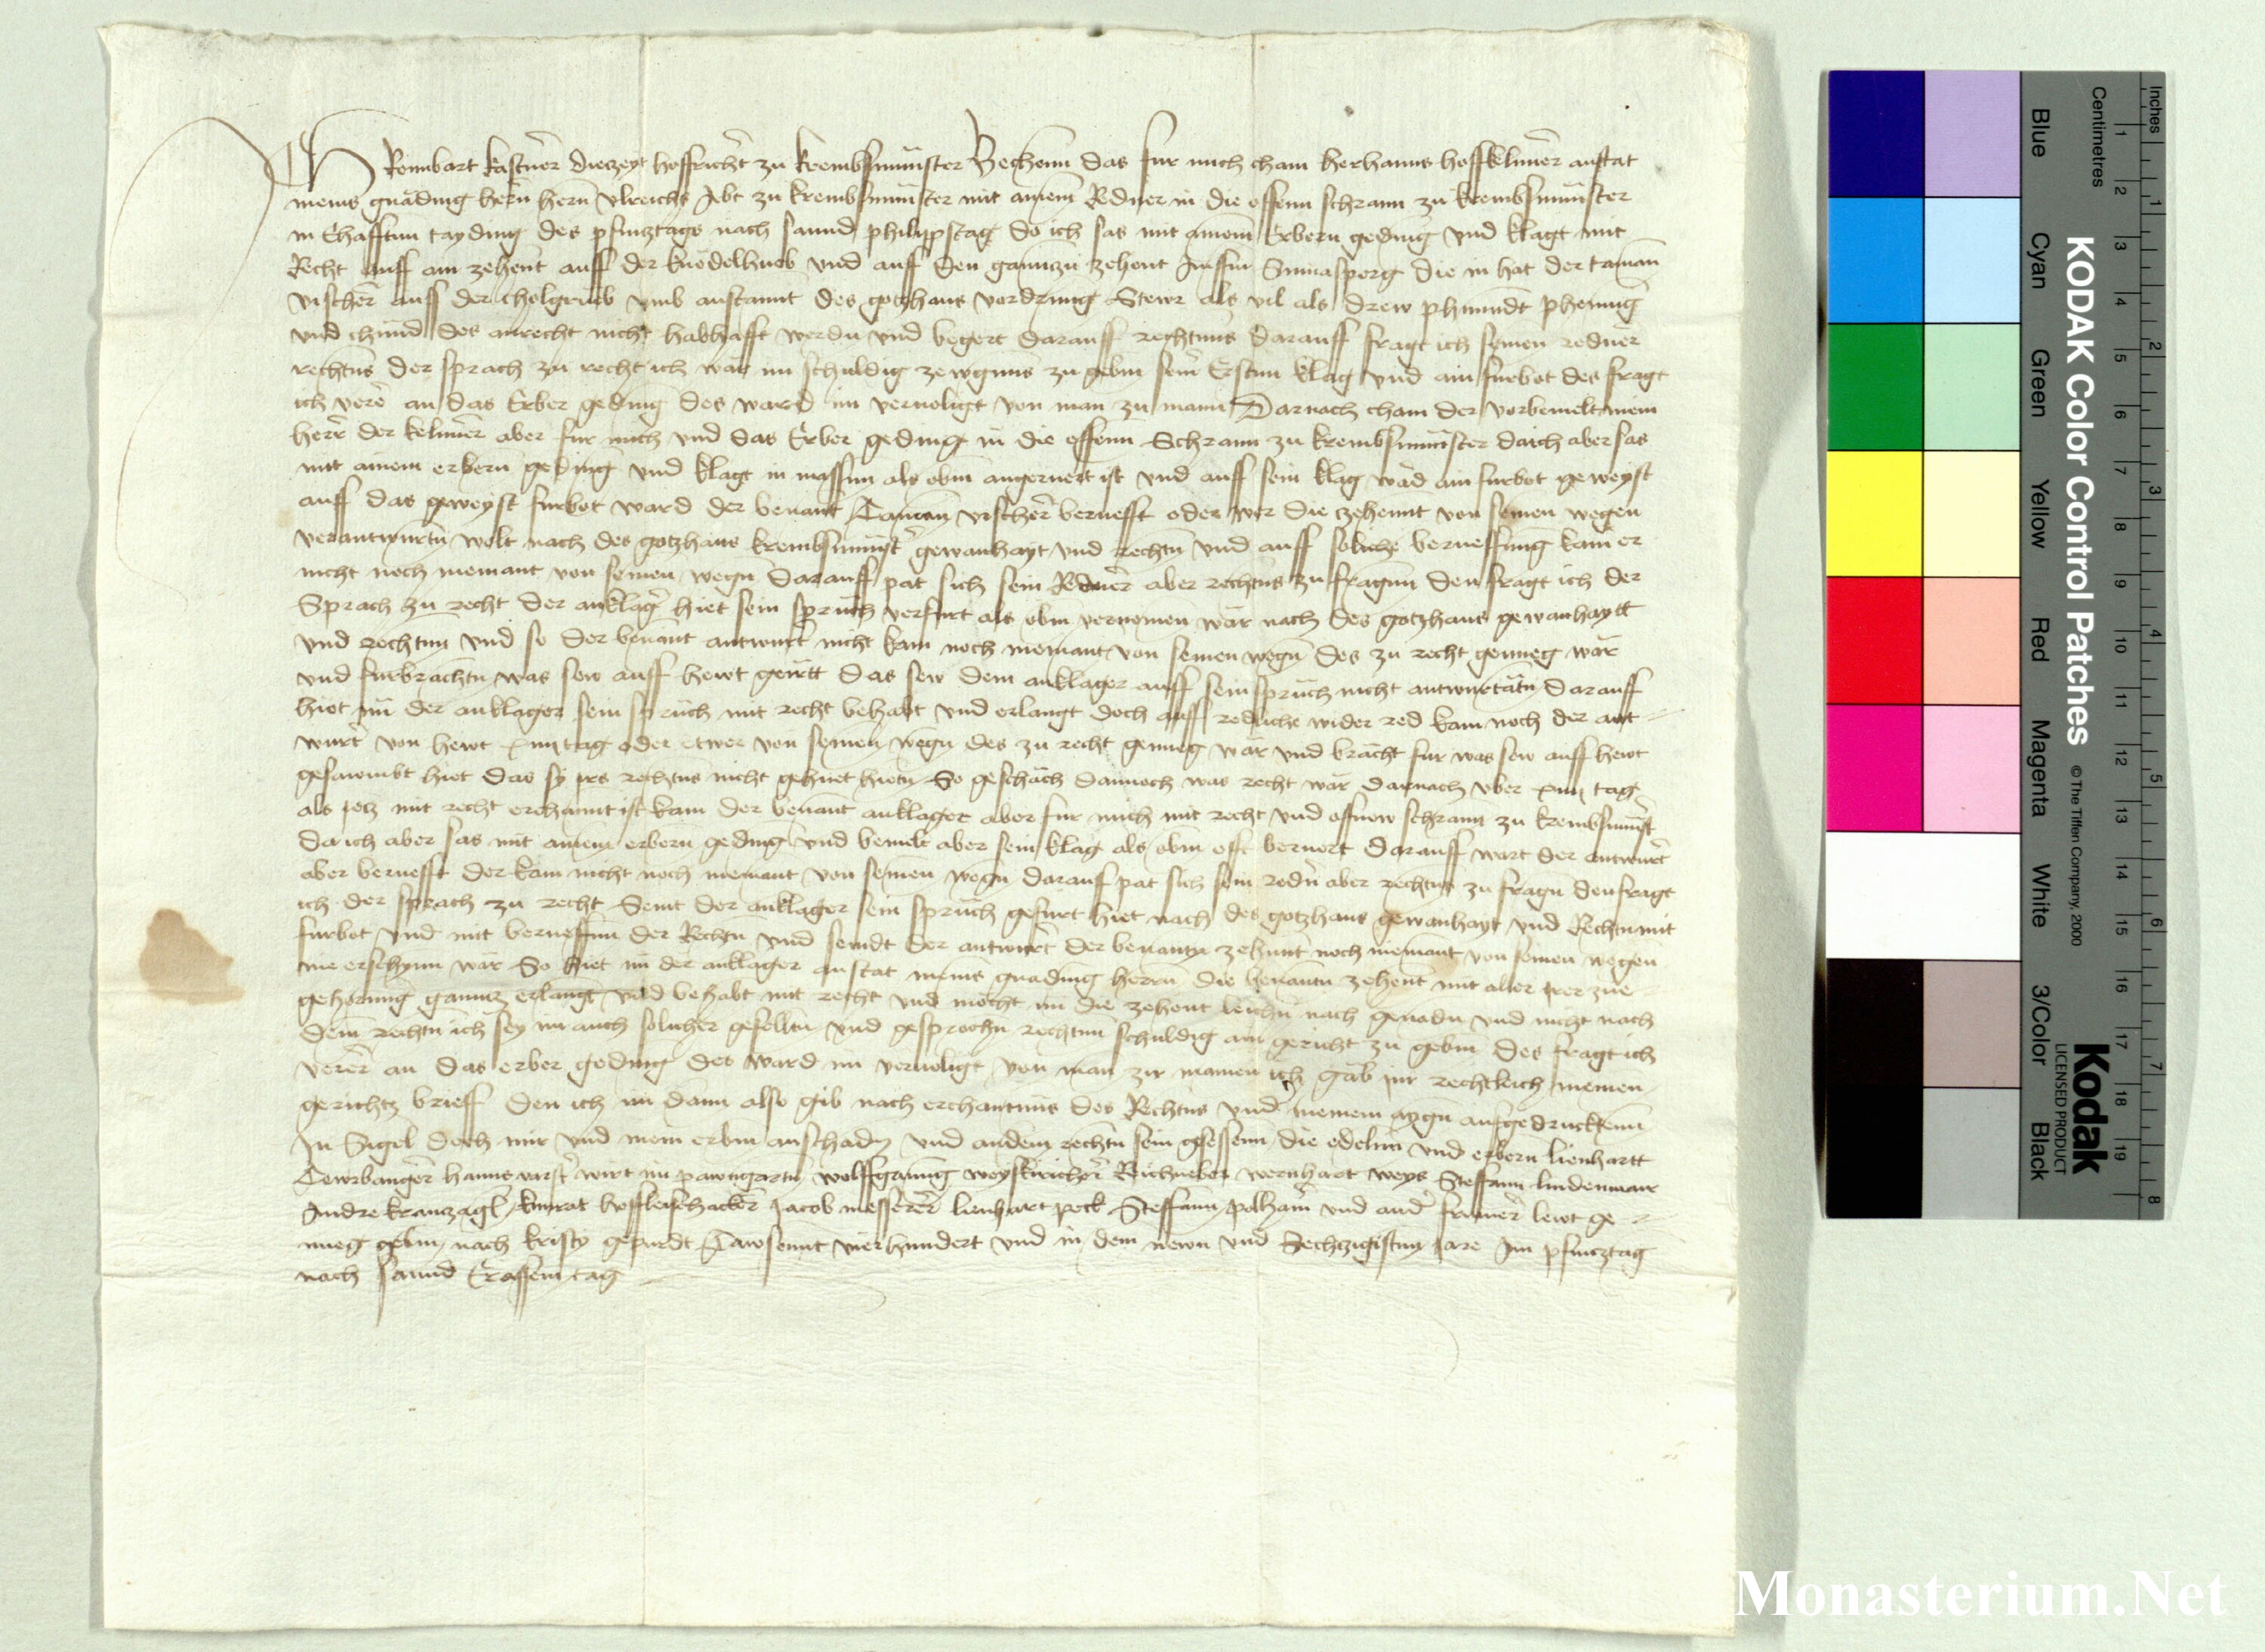 Ich Rembart kastner dieczeyt hoffricht zu krembsmunster Bechenn das fur mich cham her hanns hoffkelnner anstat
meins gnading hern hern vlreichs Abt zu krembsmunster mit ainem Redner in die offenn schrann zu krembsmunster
in Ehafftnn tayding des pfincztags nach sannd philippstag do ich sas mit ainem Erbern geding vnd klagt mit
Recht auff ain zehent auff der knodelhueb vnd auff den ganntzn zehent die in hat der taman
vischer auff der cholgrub vmb anstannt des gotzhaus vordrung Stewr als vil als drew phunndt phennig
vnd chund des anrecht nicht habhafft werdn vnd begert darauff rechtens darauff fragt ich seinen redner
rechtens der sprach zu recht ich war im schuldig zewgnus zu gebn seiner Erstnn klag vnd ain furbot des fragt
ich verer an das Erber geding des ward im veruoligt von man zu mann Darnach cham der vorbemelt mein
herr der kelnner aber fur mich vnd das Erber geding in die offenn Schrann zu krembsmunster da ich aber sas
mit ainem erbern geding vnd klagt in massnn als obn angeruert ist vnd auff sein klag wad ain furbot geweyst
auff das geweyst furbot ward der benant Taman vischer beruefft oder wer die zehennt von seinen wegen
verantwurtn wolt nach des gotzhaus krembsmunst gewanhayt vnd rechtn vnd auff soliche berueffung kam er
nicht noch niemant von seinen wegn darauff pat sich sein Redner aber rechtens zu fragnn den fragt ich der
Sprach zu recht der anklager hiet sein spruch verfurt als obn vernomen war nach des gotzhaus gewanhaytt
vnd rechtnn vnd so der benant antwurter nicht kam noch niemant von seinen wegn des zu recht genueg war
vnd furbrachtn was sew auff hewt geirtt das sew dem anklager auff sein spruch nicht antwurtatn darauff
hiet im der anklager sein spruch mit recht behabt vnd erlangt doch auff redliche wider red kam noch der ant=
wurter von hewt xiiij tag oder etwer von seinen wegn des zu recht genueg war vnd bracht fur was sew auff hewt
gesawmbt hiet das sy irs rechtens nicht hietn So geschach dannoch was recht war darnach vber xiiij tag
als jetz mit recht erchannt ist kam der benant anklager aber fur mich mit recht vnd offnew schrann zu krembsmunst
da ich aber sas mit ainem erbern geding vnd bemelt aber sein klag als obn offt beruert darauff wart der antwurter
aber beruefft der kam nicht noch niemant von seinen wegn darauf pat sich sein redner aber rechtens zu fragn den fragt
ich der sprach zu recht Seint der anklager sein spruch gefurt hiet nach des gotzhaus gewanhayt vnd Rechtn mit
furbot vnd mit berueffnn der Rechtn vnd seindt der antwurter der benantn zehennt noch niemant von seinen wegen
nie erschynn war So hiet im der anklager anstat meins gnading herrn die benantn zehent mit aller irer zue=
gehorung ganncz erlangt vnd behabt mit recht vnd mocht im die zehent leichn nach genadn vnd nicht nach
dem rechtn ich sey im auch solicher gefelltn vnd gesprochn rechtnn schuldig ain gericht zu gebn des fragt ich
verer an das erber geding des ward im veruoligt von man zu manen ich gab im rechtleich meinen
gerichtz brieff den ich im dann also gib nach erchantnus des Rechtens vnd meinem aygn aufgedrucktenn
In Sigel doch mir vnd mein erbn anschadn vnd an dem rechtn sein gesessenn die edelnn vnd erbern lienhartt
hanns wirt im pawngartn wolffgang weyskiricher wernhart weys Steffann lindenmair
Andre kranzagl kunrat hoffleischacker Jacob messerer lienhart peck Steffann polhamer vnd ander frumer lewt ge=
nueg gebn nach kristy gepurdt Tawsennt vierhundert vnd in dem newn vnd Sechzigistnn Jare Am pfincztag
nach sannd Erassem tag
Monasterium.Net
KODAK Color Control Patches
© The Tiffen Company, 2000
Kodak
LICENSED PRODUCT
Inches
1 2 3 4 5 6 7 8
Centimetres
1 2 3 4 5 6 7 8 9 10 11 12 13 14 15 16 17 18 19
Blue
Cyan
Green
Yellow
Red
Magenta
White
3/Color
Black